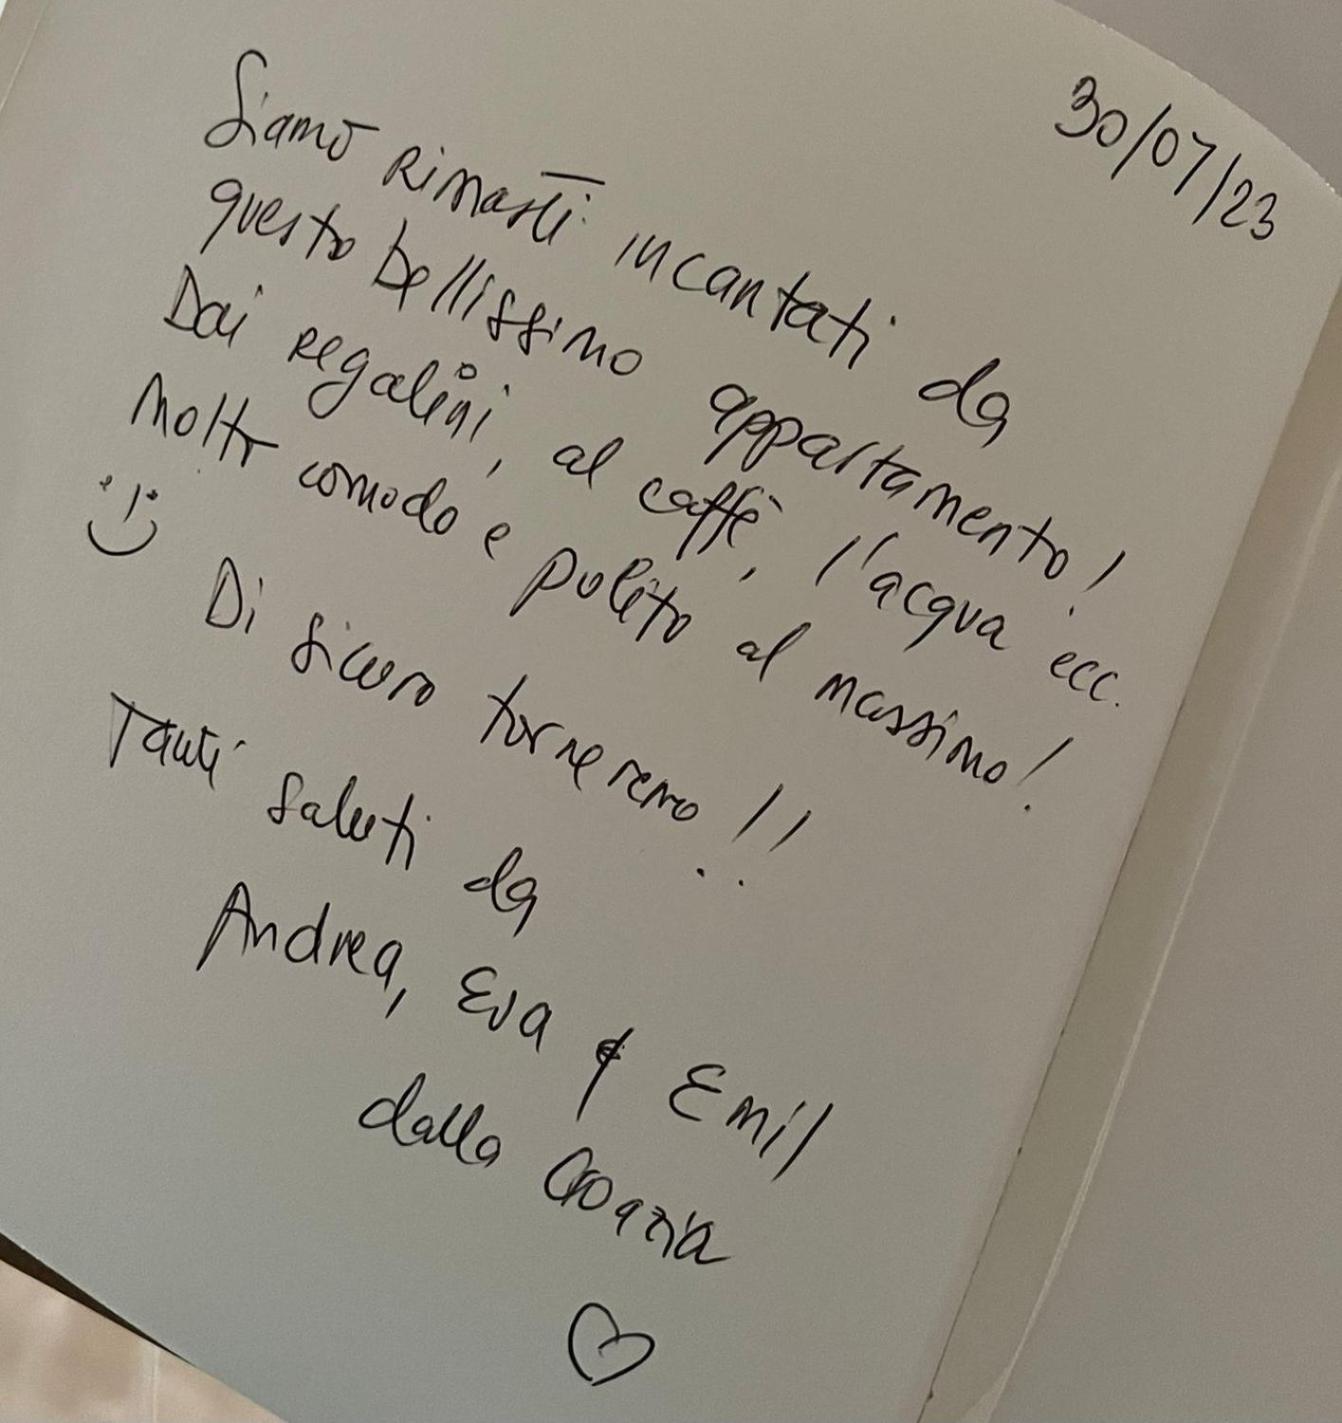 30/07/23
Siamo rimasti incantati da
questo bellissimo appartamento!
Dai regalini, al caffè, l'acqua ecc.
Molto comodo e polito al massimo!
Di sicuro torneremo!!
Tanti saluti da
Andrea, Eva & Emil
dalla Croazia